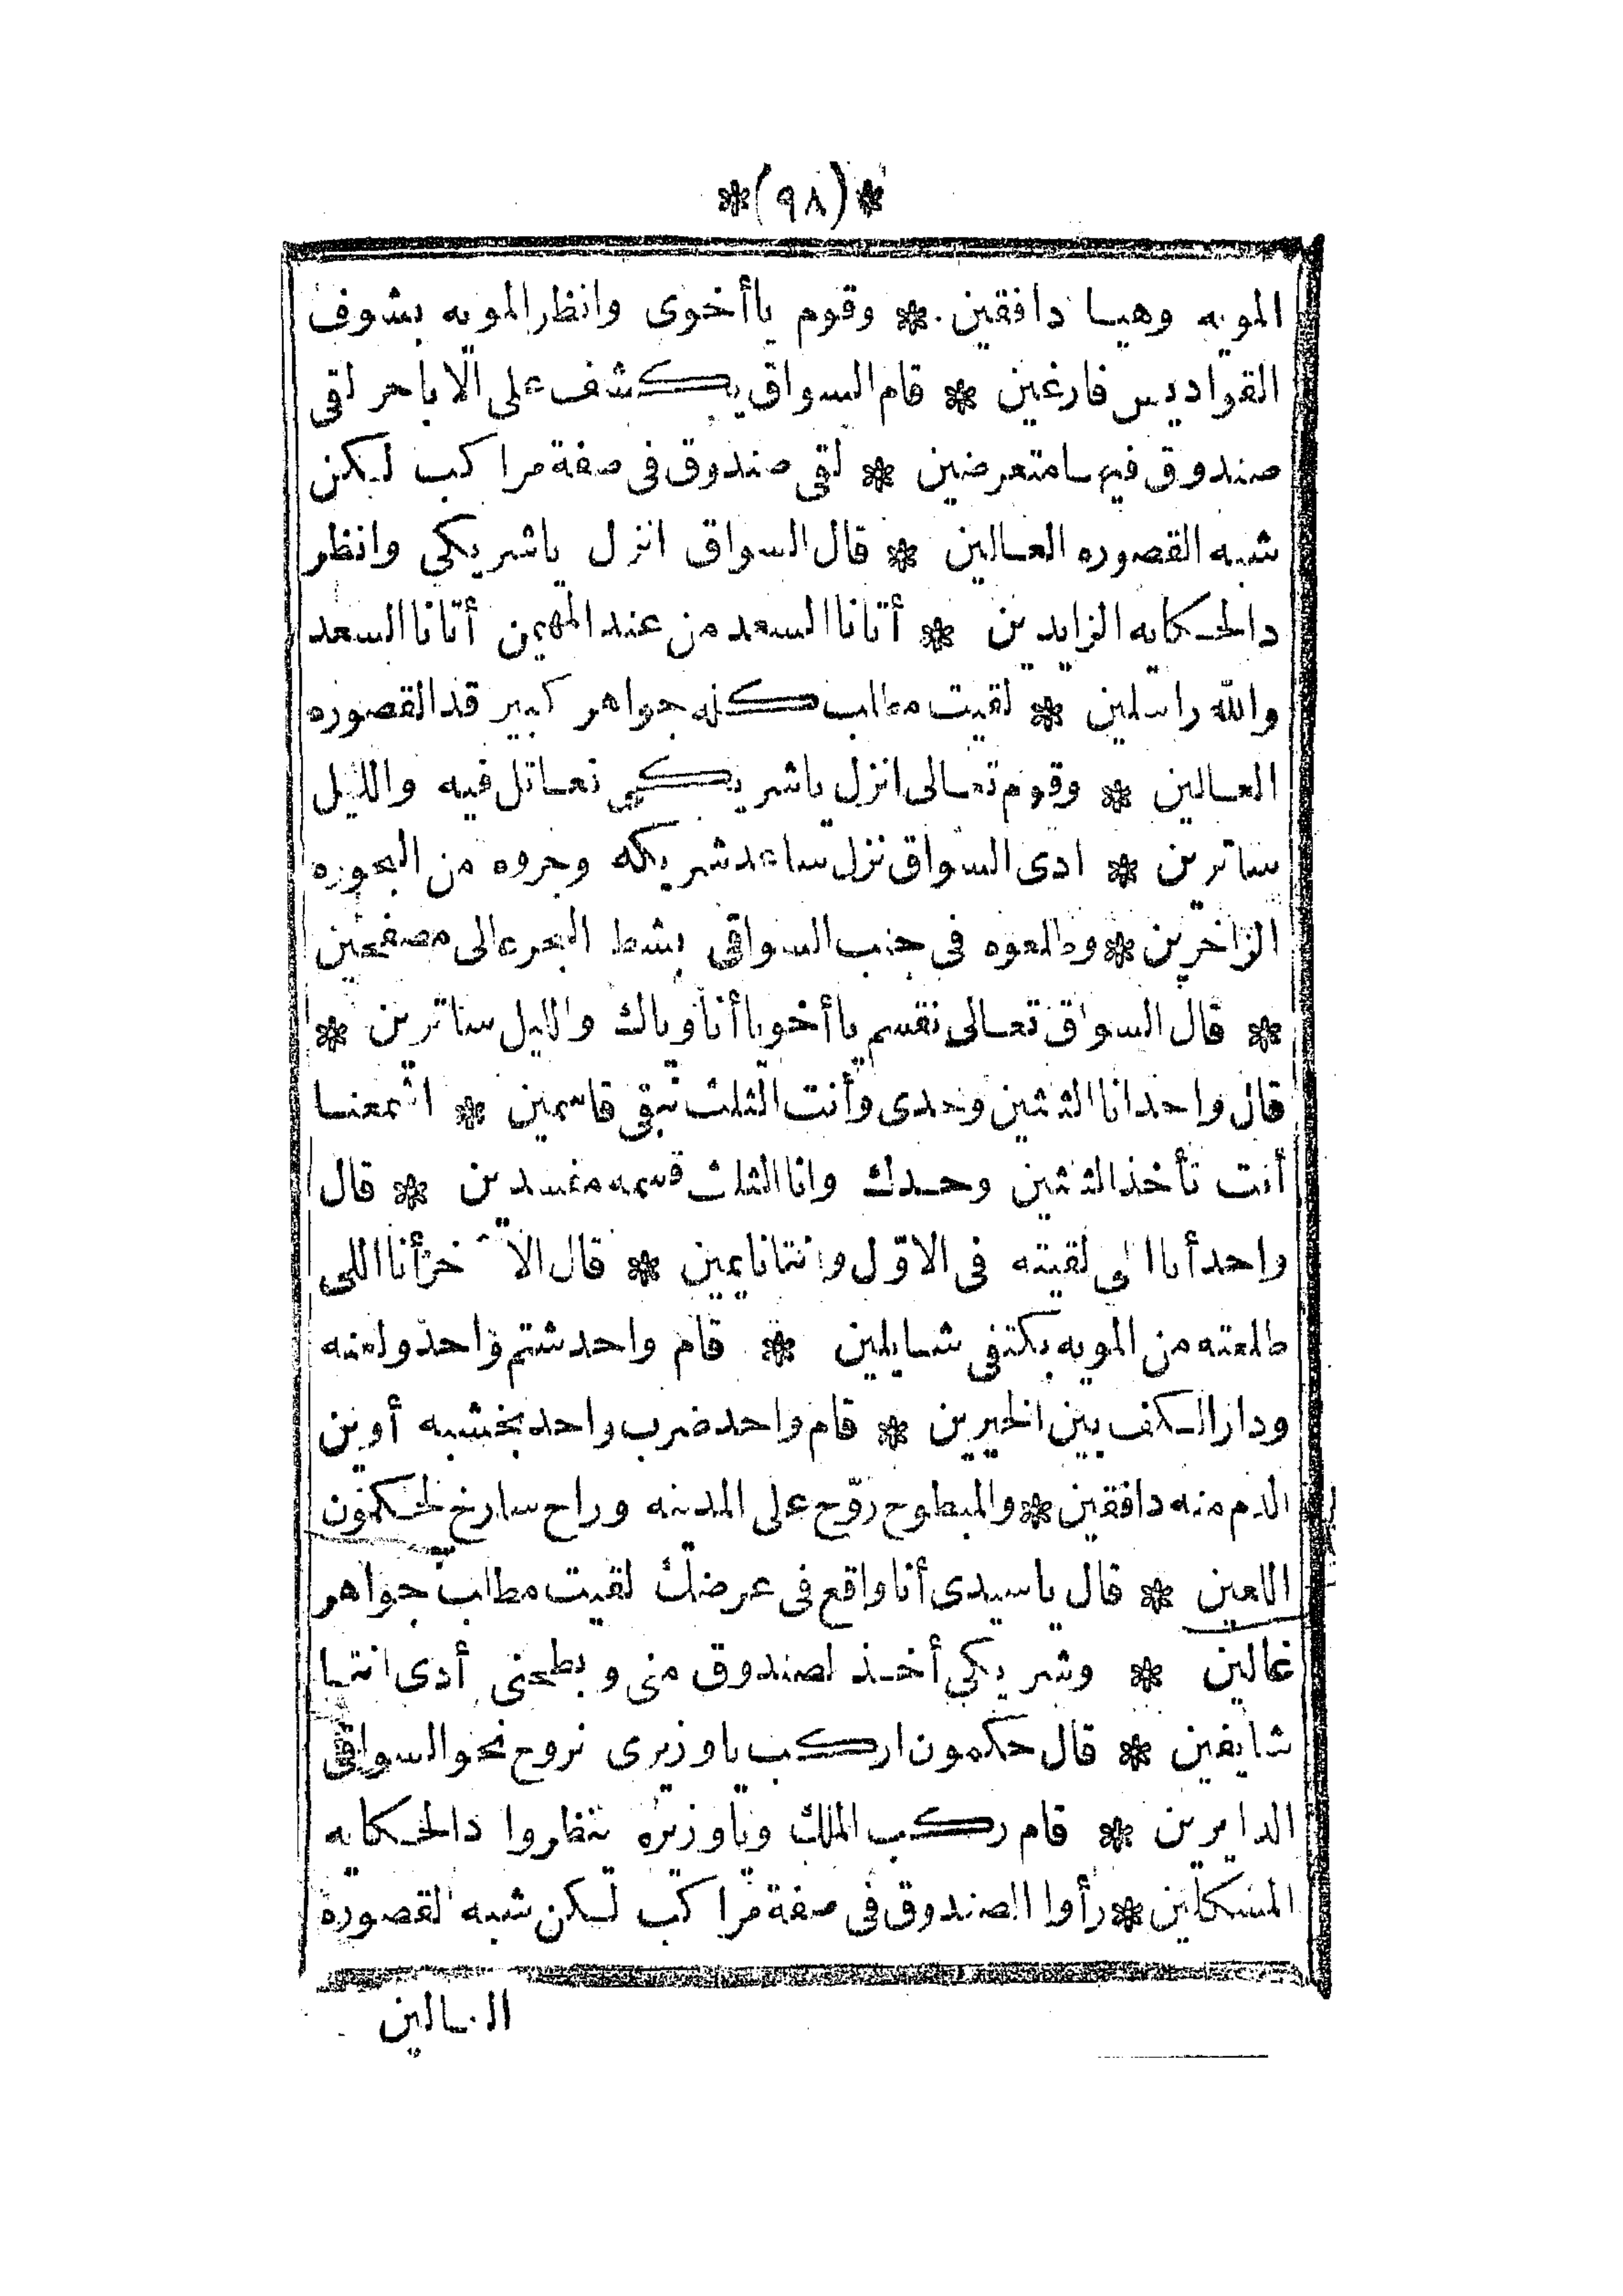 *(٩٨)*
المويه وهيا دافقين * وقوم ياأخوى وانظر المويه بشوف
القواديس فارغين * قام السواق يكشف على الاباحر لقى
صندوق فيها متعرضين * لقى صندوق فى صفة مراكب ليكن
شبه القصوره العالين * قال السواق انزل ياشريكى وانظر
دالحكايه الزايدين * أتانا السعد من عند المهيمن أتانا السعد
والله راسلين * لقيت مطلب كنه جواهر كبير قد القصوره
العالين * وقوم تعالى انزل ياشريكى نعاتل فيه والليل
ساترين * ادى السواق نزل ساعد شريكه وجروه من البحوره
الزاخرين * وطلعوه فى جنب السواقى بشط البحر عالى مصفحين
* قال السواق تعالى نقسم ياأخويا أنا وياك والليل ساترين *
قال واحد انا الثلثين وحدى وأنت الثلث تبقى قاسمين * اشمعنا
أنت تأخذ الثلثين وحدك وانا الثلث قسمه مفسدين * قال
واحد أنا اللى لقيته فى الاوّل وانتا نايمين * قال الآخر أنا اللى
طلعته من المويه بكتفى شايلين * قام واحد شتم واحد ولعنه
ودار الكف بين الخيرين * قام واحد ضرب واحد بخشبه أوين
الدم منه دافقين * والمبطوح روّح على المدينه وراح سارخ لحكمون
اللعين * قال ياسيدى أنا واقع فى عرضك لقيت مطلب جواهر
غالين * وشريكى أخذ لصندوق منى وبطحنى أدى انتا
شايفين * قال حكمون اركب ياوزيرى نروح نحو السواقى
الدايرين * قام ركب الملك وياوزيره ينظروا دالحكايه
المشكلين * رأوا الصندوق فى صفة مراكب ليكن شبه لقصوره
العالين